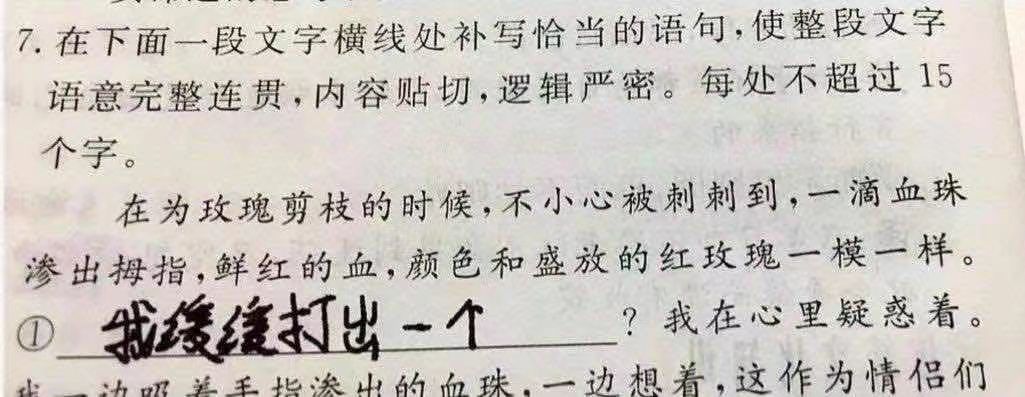 7. 在下面一段文字横线处补写恰当的语句,使整段文字
语意完整连贯,内容贴切,逻辑严密。每处不超过 15
个字。
在为玫瑰剪枝的时候,不小心被刺刺到,一滴血珠
渗出拇指,鲜红的血,颜色和盛放的红玫瑰一模一样。
① 我缓缓打出一个 ? 我在心里疑惑着。
我一边吸着手指渗出的血珠,一边想着,这作为情侣们